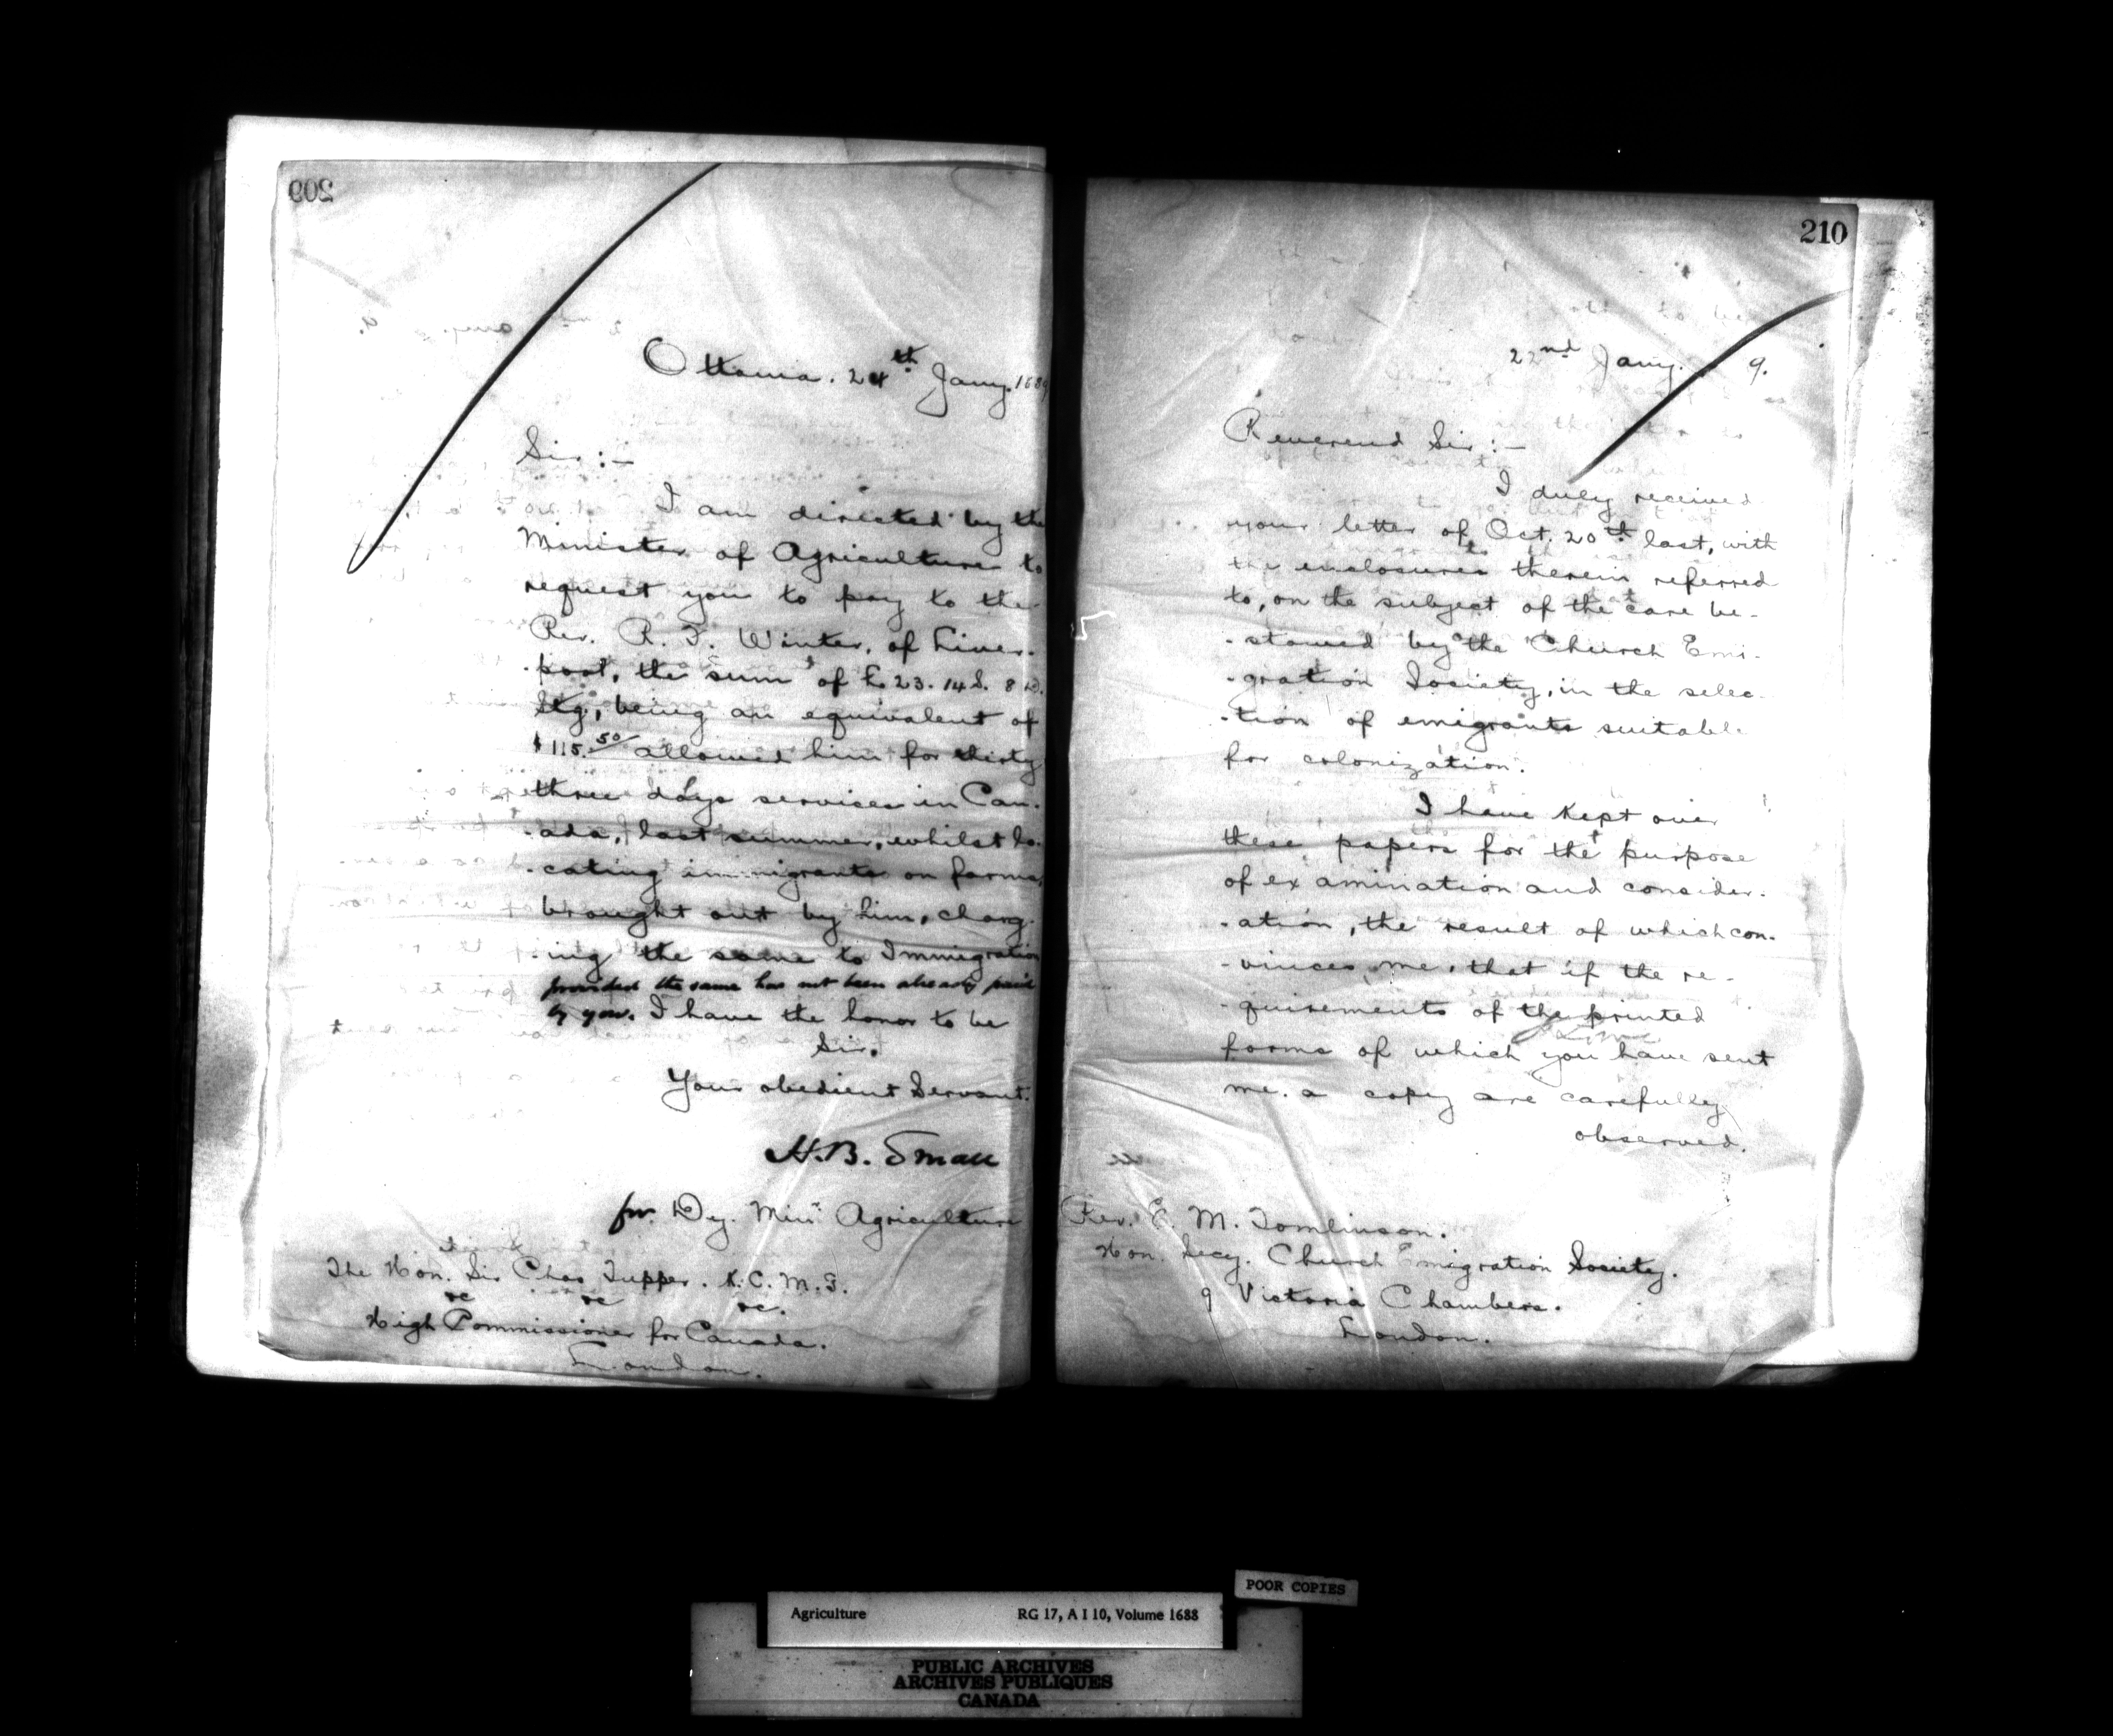 209
Ottawa. 24th Jany. 1889
Sir:—
I am directed by the
Minister of Agriculture to
request you to pay to the
Rev. R. F. Winter, of Liver-
-pool, the sum of £23. 14 S. 8 D.
Stg., being an equivalent of
$115.50/ allowed him for thirty
three days services in Can-
-ada, last summer, whilst lo-
-cating immigrants on farms,
brought out by him, charg-
-ing the same to Immigration
provided the same has not been already paid
by you. I have the honor to be
Sir.
Your obedient Servant.
H. B. Small
for Dy. Minr Agriculture
The Hon. Sir Chas Tupper. K. C. M. G.
&c &c &c.
High Commissioner for Canada.
London.
210
22nd Jany. 9.
Reverend Sir:—
I duly received
your letter of Oct. 20th last, with
the enclosures therein referred
to, on the subject of the care be-
-stowed by the Church Emi-
-gration Society, in the selec-
-tion of emigrants suitable
for colonization.
I have kept over
these papers for the purpose
of examination and consider-
-ation, the result of which con-
-vinces me, that if the re-
-quirements of the printed
forms of which you have sent
me. a copy are carefully
observed.
Rev. E. M. Tomlinson.
Hon. Secy. Church Emigration Society.
9 Victoria Chambers.
London.
POOR COPIES
Agriculture RG 17, A I 10, Volume 1688
PUBLIC ARCHIVES
ARCHIVES PUBLIQUES
CANADA